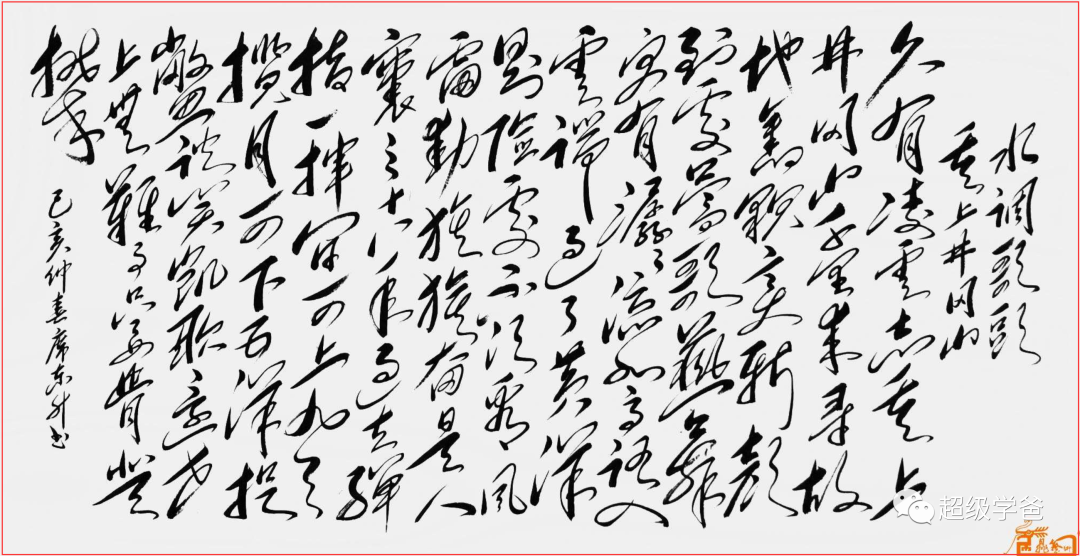 水调歌頭
重上井冈山
久有凌雲志重上
井冈山千里来寻故
地舊貌变新颜
到处莺歌燕舞
更有潺潺流水高路入
雲端过了黄洋
界险处不须看风
雷動旌旗奋是人
寰三十八年过去弹
指一挥间可上九天
揽月可下五洋捉
鳖谈笑凯歌还世
上無難事只要肯登
攀
己亥仲春席东升书
超级学爸